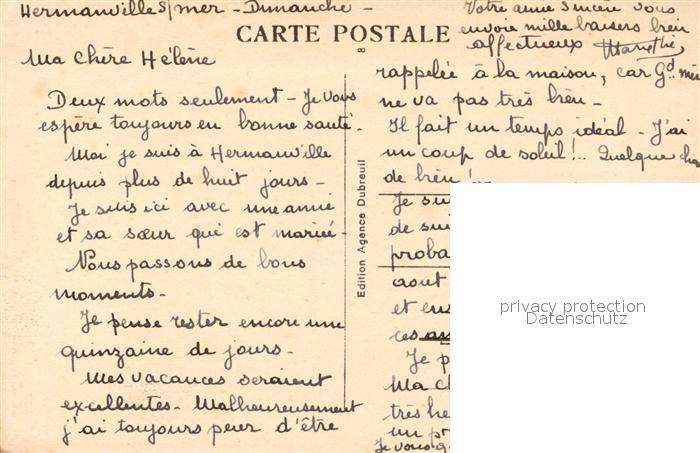 Hermanville s/mer - Dimanche -
CARTE POSTALE
8
Ma Chère Hélène
Deux mots seulement - Je vous
espère toujours en bonne santé.
Moi je suis à Hermanville
depuis plus de huit jours -
Je suis ici avec une amie
et sa sœur qui est mariée -
Nous passons de bons
moments -
Je pense rester encore une
quinzaine de jours -
Mes vacances seraient
excellentes - Malheureusement
j'ai toujours peur d'être
Edition Agence Dubreuil
rappelée à la maison, car Gd mè
ne va pas très bien -
Il fait un temps idéal - J'ai
un coup de soleil !.. Quelque cho
de bien !..
Je su
de sui
proba
aout
et en
ces
Je p
Ma ch
très he
un p
Je vous
Votre amie sincère vous
envoie mille baisers bien
affectueux
privacy protection
Datenschutz